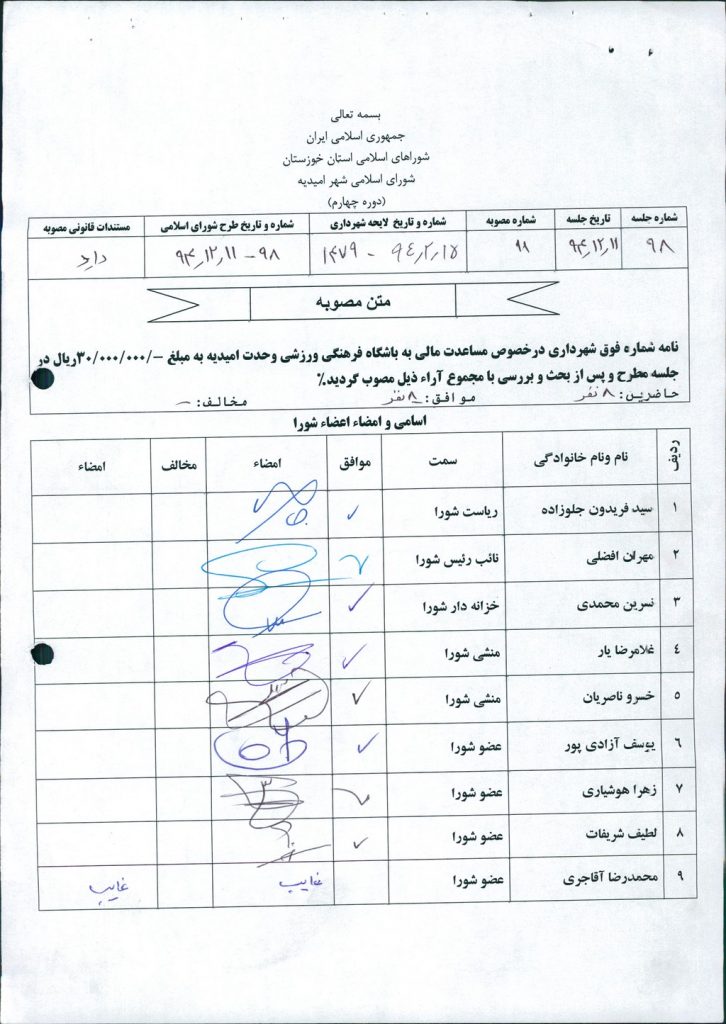 بسمه تعالی
جمهوری اسلامی ایران
شوراهای اسلامی استان خوزستان
شورای اسلامی شهر امیدیه
(دوره چهارم)
شماره جلسه تاریخ جلسه شماره مصوبه شماره و تاریخ لایحه شهرداری شماره و تاریخ طرح شورای اسلامی مستندات قانونی مصوبه
۹۸ ۹۴٫۱۲٫۱۱ ۹۴٫۲٫۱۵ - ۱۴۷۹ ۹۸ - ۹۴٫۱۲٫۱۱ دارد
متن مصوبه
نامه شماره فوق شهرداری درخصوص مساعدت مالی به باشگاه فرهنگی ورزشی وحدت امیدیه به مبلغ -/۳۰/۰۰۰/۰۰۰ریال در
جلسه مطرح و پس از بحث و بررسی با مجموع آراء ذیل مصوب گردید.٪
حاضرین: ۸ نفر موافق: ۸ نفر مخالف: -
اسامی و امضاء اعضاء شورا
ردیف نام ونام خانوادگی سمت موافق امضاء مخالف امضاء
۱ سید فریدون جلوزاده ریاست شورا ✓
۲ مهران افضلی نائب رئیس شورا ✓
۳ نسرین محمدی خزانه دار شورا ✓
٤ غلامرضا یار منشی شورا ✓
۵ خسرو ناصریان منشی شورا ✓
٦ یوسف آزادی پور عضو شورا ✓
۷ زهرا هوشیاری عضو شورا ✓
۸ لطیف شریفات عضو شورا ✓
۹ محمدرضا آقاجری عضو شورا غایب غایب